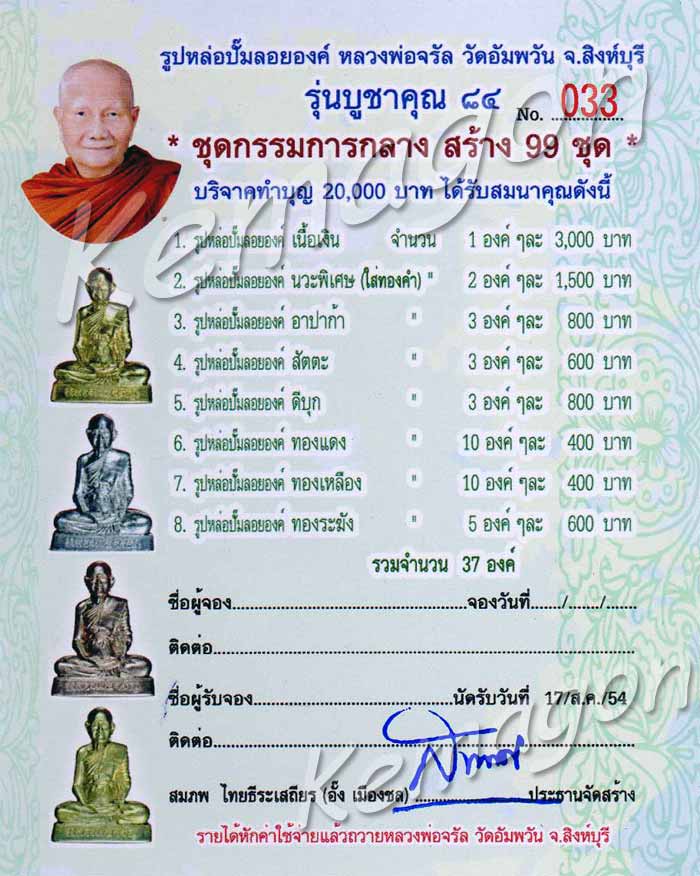 รูปหล่อปั๊มลอยองค์ หลวงพ่อจรัล วัดอัมพวัน จ.สิงห์บุรี
รุ่นบูชาคุณ ๘๔ No. 033
* ชุดกรรมการกลาง สร้าง 99 ชุด *
บริจาคทำบุญ 20,000 บาท ได้รับสมนาคุณดังนี้
1. รูปหล่อปั๊มลอยองค์ เนื้อเงิน จำนวน 1 องค์ ๆละ 3,000 บาท
2. รูปหล่อปั๊มลอยองค์ นวะพิเศษ (ใส่ทองคำ) " 2 องค์ ๆละ 1,500 บาท
3. รูปหล่อปั๊มลอยองค์ อาปาก้า " 3 องค์ ๆละ 800 บาท
4. รูปหล่อปั๊มลอยองค์ สัตตะ " 3 องค์ ๆละ 600 บาท
5. รูปหล่อปั๊มลอยองค์ ดีบุก " 3 องค์ ๆละ 800 บาท
6. รูปหล่อปั๊มลอยองค์ ทองแดง " 10 องค์ ๆละ 400 บาท
7. รูปหล่อปั๊มลอยองค์ ทองเหลือง " 10 องค์ ๆละ 400 บาท
8. รูปหล่อปั๊มลอยองค์ ทองระฆัง " 5 องค์ ๆละ 600 บาท
รวมจำนวน 37 องค์
ชื่อผู้จอง..........จองวันที่......./......./.......
ติดต่อ..........
ชื่อผู้รับจอง..........นัดรับวันที่ 17/ส.ค./54
ติดต่อ..........
สมภพ ไทยธีระเสถียร (อั๊ง เมืองชล) ..........ประธานจัดสร้าง
รายได้หักค่าใช้จ่ายแล้วถวายหลวงพ่อจรัล วัดอัมพวัน จ.สิงห์บุรี
Kemagon
Kemagon